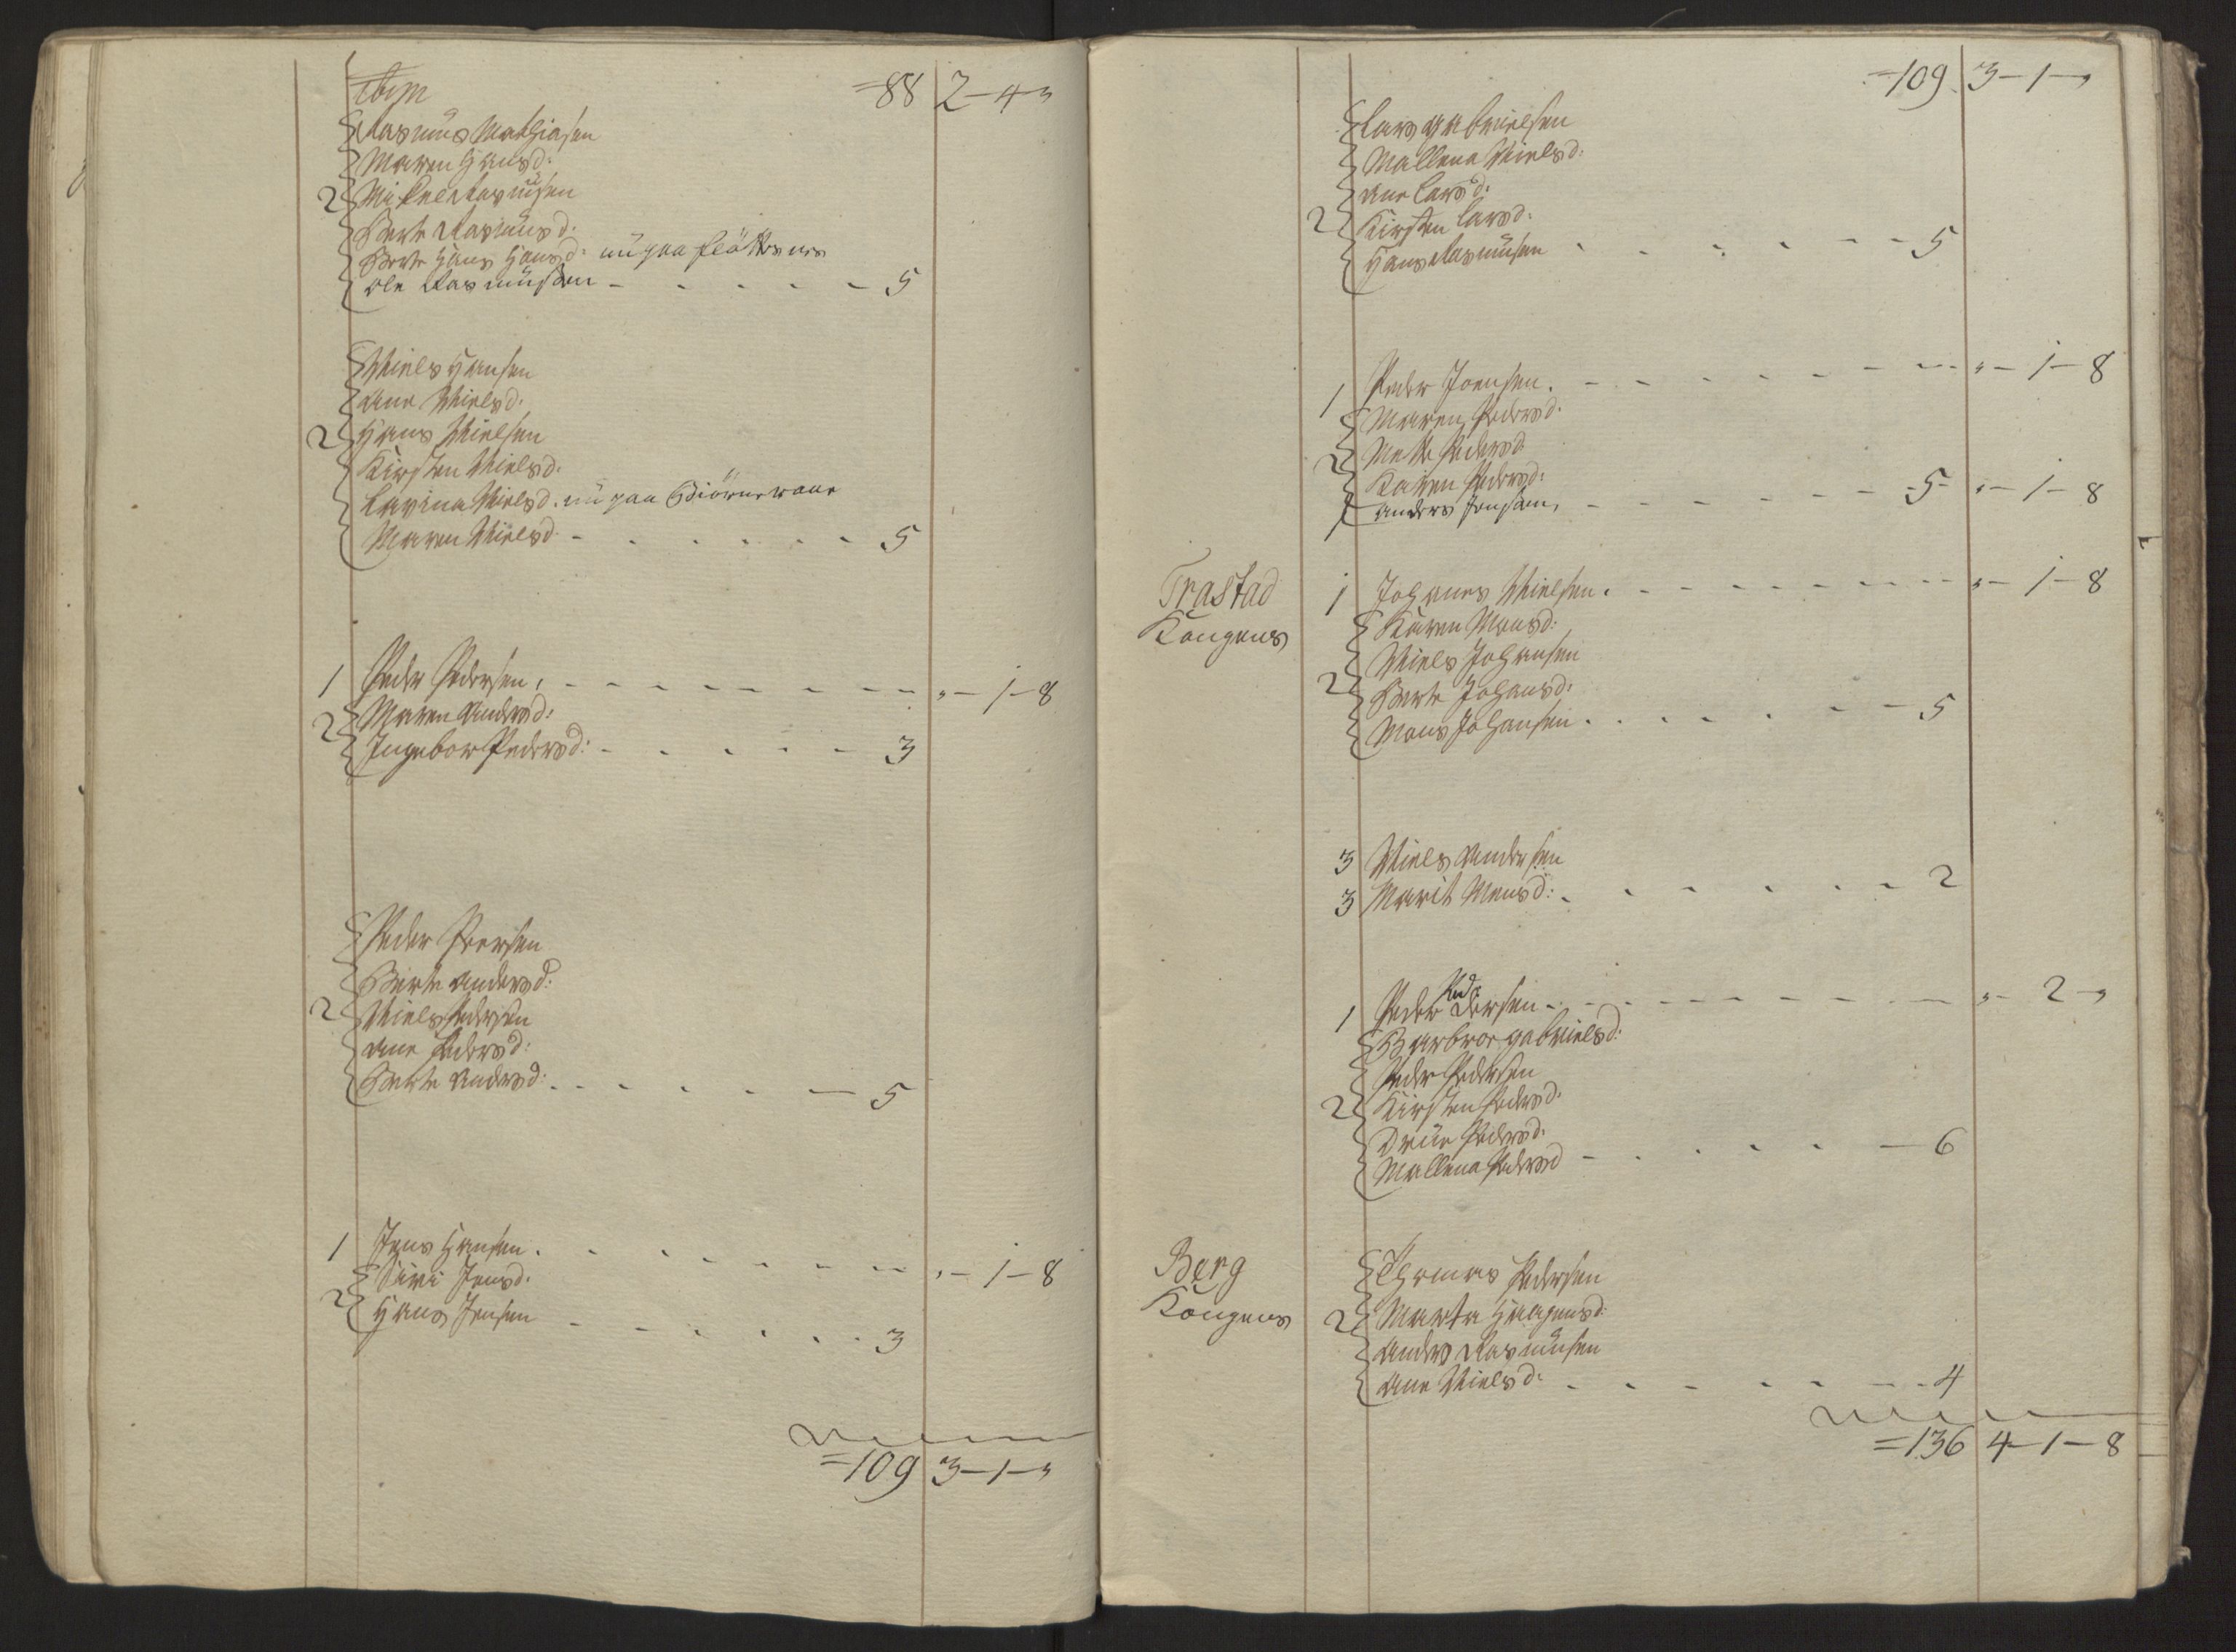 =88 2-4-"
Rasmus Mathiasen
Maren Hansd:
2 Mikkel Rasmusen
Berte Rasmusd:
Berte Hans Hansd: nu paa
Ole Rasmussen - - - - - 5
Niels Hansen
Ane Nielsd:
2 Hans Nielsen
Kirsten Nielsd:
Lavina Nielsd. nu paa
Maren Nielsd - - - - - 5
1 Peder Pedersen, - - - - - - - - "-1-8
Maren Andersd:
2
Ingebor Pedersd: - - - - - 3
Peder Peersen
Berte Andersd:
2 Niels Pedersen
Ane Pedersd:
Berte Andersd: - - - - - 5
1 Jens Hansen. - - - - - - - "-1-8
Siri Jensd.
2
Hans Jensen - - - - - - 3
=109 3-1-"
=109 3-1-"
Lars Gabrielsen
Mallena Nielsd:
Ane Larsd:
2 Kirsten Larsd:
Hans Rasmusen - - - - - - 5
1 Peder Joensen. - - - - - - - "-1-8
Maren Pedersd:
2 Mette Pedersd
Karen Pedersd:
1 Anders Jensen, - - - - - - 5- "-1-8
Trastad
Kongens
1 Johanes Nielsen. - - - - - - - "-1-8
Karen Monsd:
Niels Johansen
2 Berte Johansd:
Mons Johansen. - - - - - - 5
3 Niels Andersen
3 Marit Monsd: - - - - - - 2
1 Peder Pedersen - - - - - - - "-2-"
Barbroe Gabrielsd:
Peder Pedersen
2 Kirsten Pedersd:
Pedersd:
Mallena Pedersd - - - - - - 6
Berg
Kongens
Thomas Pedersen
2 Marta Haagensd:
Anders Rasmusen
Ane Nielsd: - - - - - - 4
=136 4-1-8